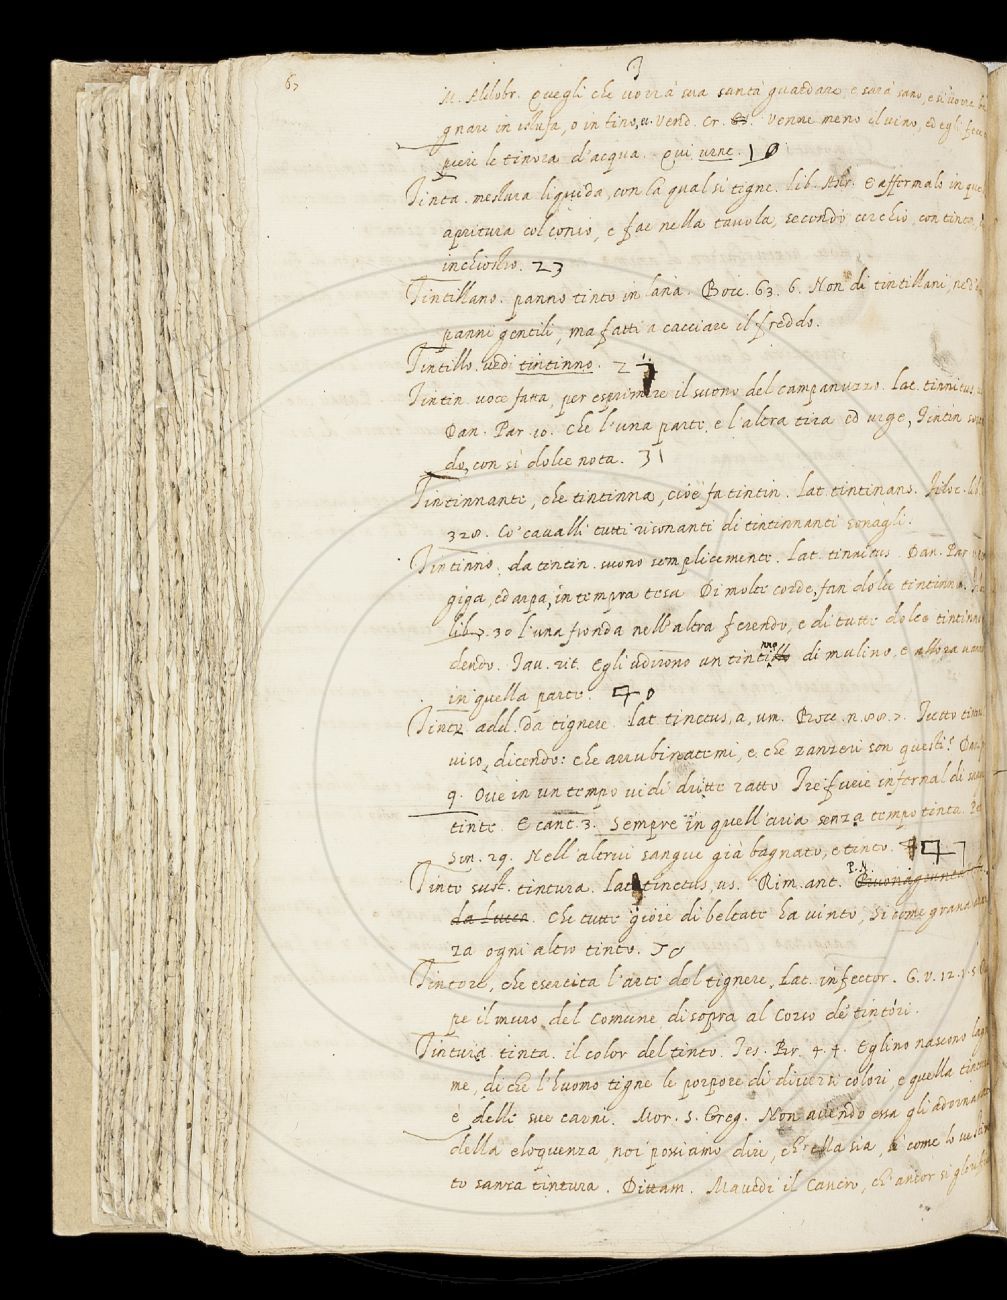 67
3
M. Aldobr. Quegli che vorrà sua santà guardare, e sarà sano, e si vorrà
gnare in istufa, o in tino, v. Vend. Cr. Venne meno il vino, ed egli
piere le tinora d'acqua. Qui urne. 10
Tinta. mestura liquida, con la qual si tigne. Lib. Astr. E affermalo in
apritura col conio, e fae nella tavola, secondo cerchio, con tinta,
inchiostro. 23
Tintillano. panno tinto in lana. Bocc. 63. 6. Non di tintillani, ne di
panni gentili, ma fatti a cacciare il freddo.
Tintillo. vedi tintinno. 2
Tintin. voce fatta, per esprimere il suono del campanuzzo. Lat. tinnitus
Dan. Par. 10. Che l'una parte, e l'altra tira ed urge, Tintin
do, con sì dolce nota. 31
Tintinnante, che tintinna, cioè fa tintin. Lat. tintinans. Filoc. lib.
328. Co' cavalli tutti risonanti di tintinnanti sonagli.
Tintinno. da tintin. suono semplicemente. Lat. tinnitus. Dan. Par.
giga, ed arpa, in tempra tesa Di molte corde, fan dolce tintinno.
lib. 7. 30 l'una fronda nell'altra ferendo, e di tutte dolce
dendo. Tav. rit. Egli udirono un tintinno di mulino, e allora
in quella parte. 40
Tinto add. da tignere. Lat. tinctus, a, um. Bocc. n. 88. 7. Tutto tinto
viso, dicendo: che arrubinatemi, e che zanzeri son questi?
9. Ove in un tempo vidi dritte ratto Tre furie infernal di
tinte. E cant. 3. Sempre in quell'aria senza tempo tinta.
Son. 29. Nell'altrui sangue già bagnato, e tinto. 47
Tinto sust. tintura. Lat. tinctus, us. Rim. ant. P. N. Buonagiunta
da Lucca. Che tutte gioie di beltate ha vinto, Sì come grana
za ogni altro tinto. 50
Tintore, che esercita l'arte del tignere. Lat. infector. G. V. 12.
pe il muro del Comune di sopra al Corso de' tintori.
Tintura. tinta. il color del tinto. Tes. Br. 4. 4. Eglino nascono
me, di che l'huomo tigne le porpore di diversi colori, e quella
è delle sue carni. Mor. S. Greg. Non avendo essa gli
della eloquenza, noi possiamo dire, ch'ella sia, sì come lo
to sanza tintura. Dittam. Mavedi il Cancro, ch'ancor si